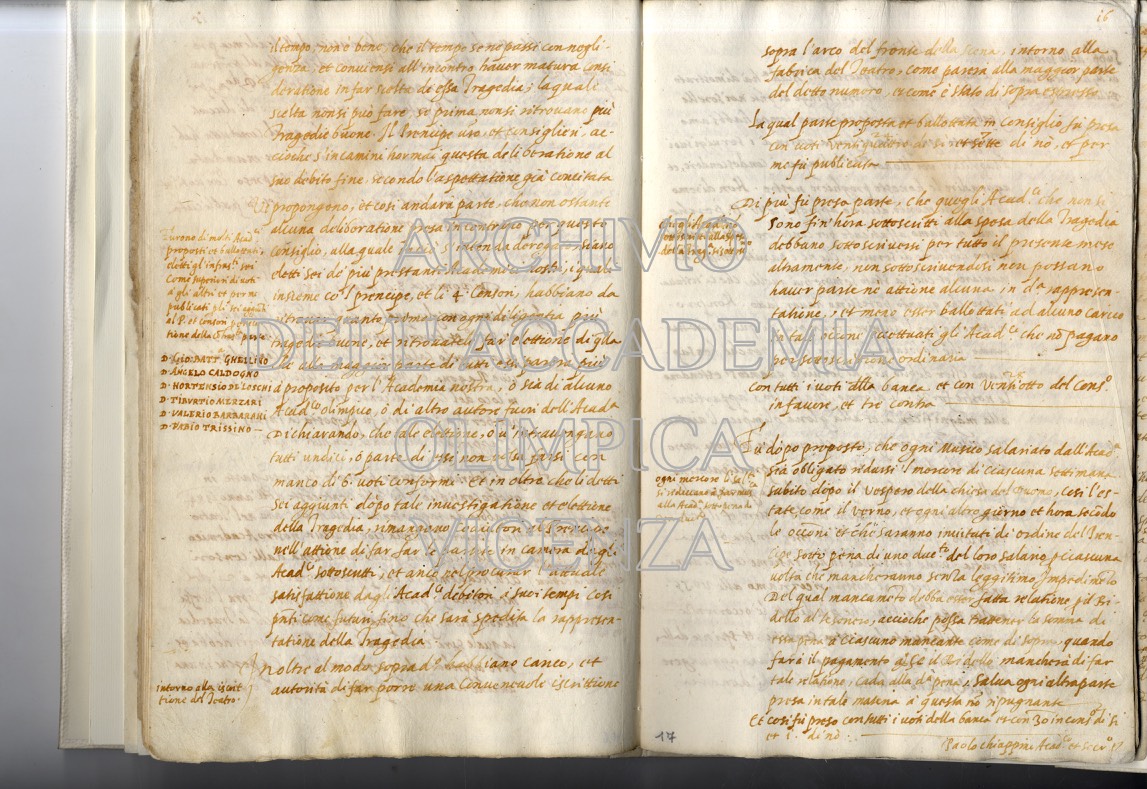 15
il tempo, non è bene, che il tempo se ne passi con negli-
genza, et conviensi all'incontro haver matura consi
deratione in far scelta de essa Tragedia; la quali
scelta non si può fare, se prima non si ritrovano più
Tragedie buone. Il Prencipe uro, et consiglieri, ac-
cioche s'incamini hormai questa deliberatione al
suo debito fine, secondo l'aspettatione già concitata
propongono, et così andarà parte, che non ostante
alcuna deliberatione presa in contrario per questo
consiglio, alla quale s'intenda derogar siano
detti sei de' più prestanti Academici nostri, i quali
insieme co'l prencipe, et li 4. Censori, habbiano da
ritrovar quanto prima con ogni diligentia più
tragedie buone, et ritrovatele far elettione di q̃lla
che alla maggior parte di tutti essi parerà più
à proposito per l'Academia nostra, ò sia di alcuno
Acad.co olimpico, ò di altro autore fuori dell'Acad.a
Dichiarando, che tale elettione, ò v'intravengano
tutti undici, ò parte di essi non possi farsi con
manco di 6. voti conformi. et in oltre che li detti
sei aggiunti dopò tale investigatione et elettione
della Tragedia, rimangono
nell'attione di far far le in camera degli
Acad.ci sottoscritti, et anco nel procurar l'attuale
satisfattione dagli Acad.ci debitori à suoi tempi così
pñti come futuri, fino che sarà spedita la rappresen-
tatione della Tragedia.
Inoltre al modo soprad.o habbiano carico, et
autorità di far porre una Convenevole iscrittione
Furono di molti Acad.ci
proposti et ballotati,
eletti gl'infra.tti sei
Come superiori di voti
à gli altri et per me
publicati gli sei aggiũti
al P. et Censori
D. GIO: BATT. GHELLINO
D. ANGELO CALDOGNO
D. HORTENSIO DE LOSCHI
D. TIBURTIO MERZARI
D. VALERIO BARBARANI
D. UABIO TRISSINO
intorno alla iscrit
tione del Teatro.
16
sopra l'arco del fronte della scena, intorno alla
fabrica del Teatro, come parerà alla maggior parte
del detto numero, et come è stato di sopra espresso.
La qual parte proposta et ballottata in Consiglio fù presa
con voti ventiquattro di sì et sette di nò, et per
me fu publicata
Di più fù presa parte, che quegli Acad.ci che non si
sono fin'hora sottoscritti alla spesa della Tragedia
debbano sottoscriversi per tutto il presente mese
altramente, non sottoscrivendosi non possano
haver parte nè attione alcuna in d.a rappresen-
tatione, et meno esser ballottati ad alcuno carico
in tal eccettuati gli Acad.ci che nõ pagano
per sottoscrittione ordinaria
Con tutti i voti alla banca et con Ventiotto del Cons.o
in favore, et tre contra
Fu dopo proposto, che ogni Musico salariato dall'Acad.a
sia obligato ridursi i mercore di ciascuna settimana
subito dopo il vespero della chiesa del Duomo, così l'es-
tate, come il verno, et ogni altro giorno et hora secõdo
le occõni et che saranno invitati di ordine del Pren-
cipe sotto pena di uno duc.to del loro salario p ciascuna
volta che mancheranno senza leggitimo impedimẽto
Del qual mancamẽto debba esser fatta relatione p il Bi-
dello al Tesoriero, accioche possa trattener la somma di
essa pena à ciascuno mancante come di sopra, quando
farà il pagamento et se il Bidello mancherà di far
tale relatione, cada alla d.a pena, salva ogni altra parte
presa in tale materia à questa nõ ripugnante
Et così fù preso con tutti i voti della banca et con 30 in cons.o di sì
et 1. di nò.
Paolo Chiappini Acad.co et Secr.o
ogni mercore li salti
si reducano à far musi
alla Acad.a sotto pena di
duc.to
17